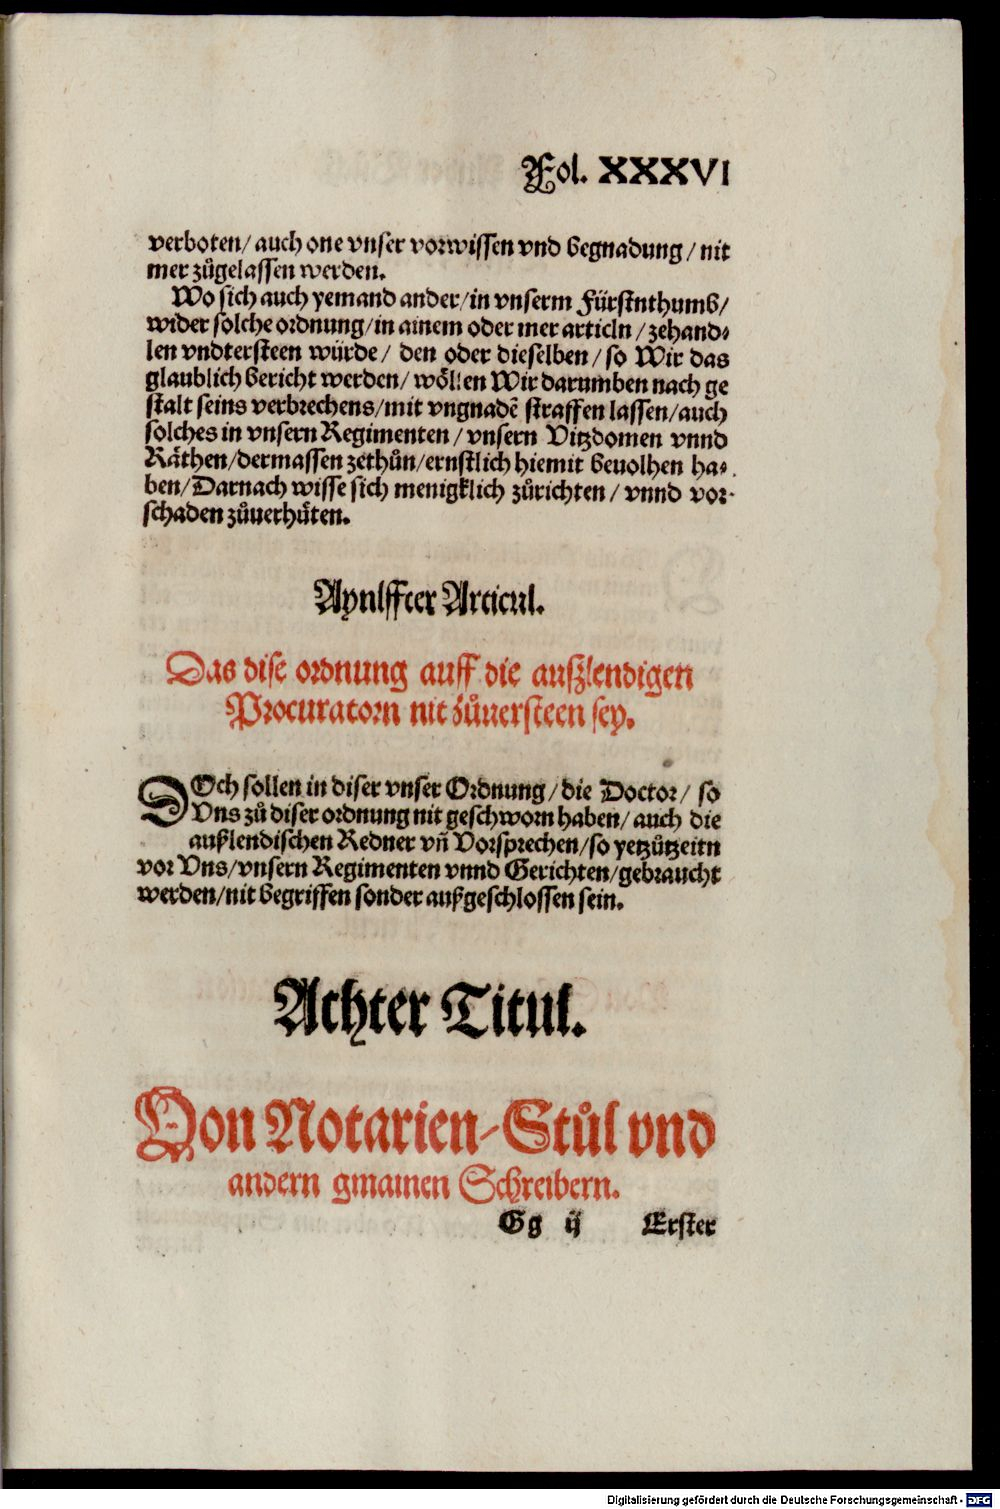 Fol. XXXVI
verboten/ auch one vnser vorwissen vnd begnadung/ nit
mer zůgelassen werden.
Wo sich auch yemand ander/ in vnserm Fürstnthumb/
wider solche ordnung/ in ainem oder mer articln/ zehand⸗
len vndtersteen würde/ den oder dieselben/ so Wir das
glaublich bericht werden/ wöllen Wir darumben nach ge
stalt seins verbrechens/ mit vngnadē straffen lassen/ auch
solches in vnsern Regimenten/ vnsern Vitzdomen vnnd
Räthen/ dermassen zethůn/ ernstlich hiemit beuolhen ha⸗
ben/ Darnach wisse sich menigklich zůrichten/ vnnd vor⸗
schaden zůuerhüten.
Aynlffter Articul.
Das dise ordnung auff die außlendigen
Procuratorn nit zůuersteen sey.
DOch sollen in diser vnser Ordnung/ die Doctor/ so
Vns zů diser ordnung nit geschworn haben/ auch die
außlendischen Redner vn̄ Vorsprechen/ so yetzůtzeitn
vor Vns/ vnsern Regimenten vnnd Gerichten/ gebraucht
werden/ nit begriffen sonder außgeschlossen sein.
Achter Titul.
Von Notarien-Stůl vnd
andern gmainen Schreibern.
Gg ij Erster
Digitalisierung gefördert durch die Deutsche Forschungsgemeinschaft - DFG